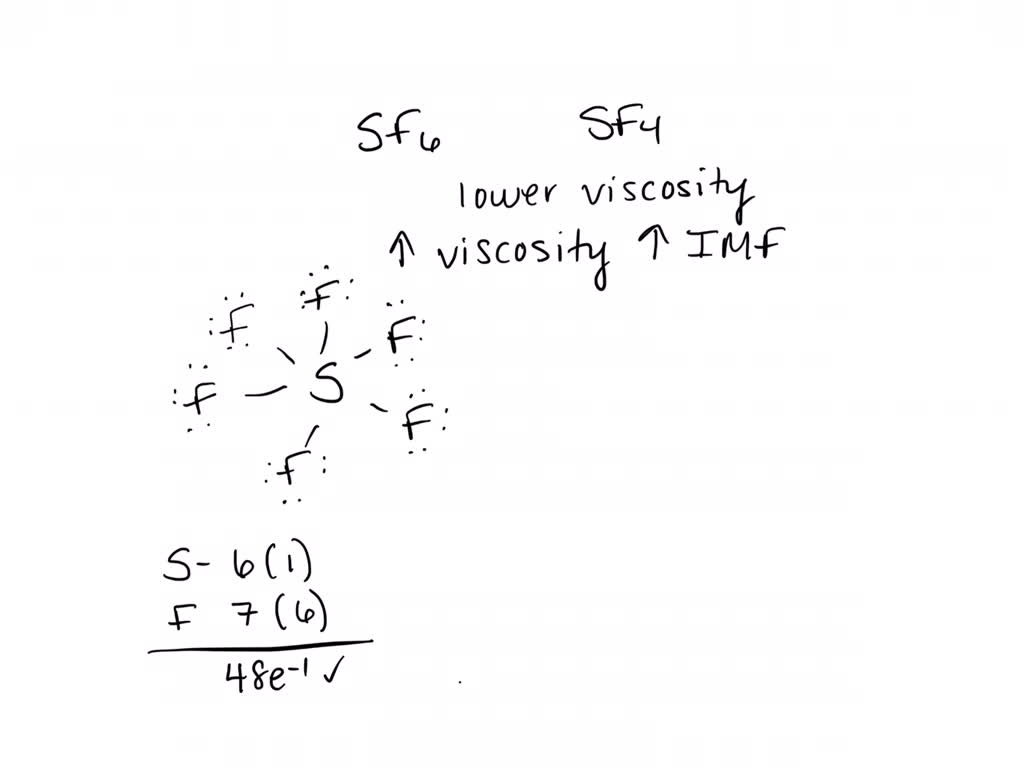 SF6 SF4
lower viscosity
↑ viscosity ↑ IMF
F
F F
S
F F
F
S- 6(1)
F 7(6)
48e-1 ✓